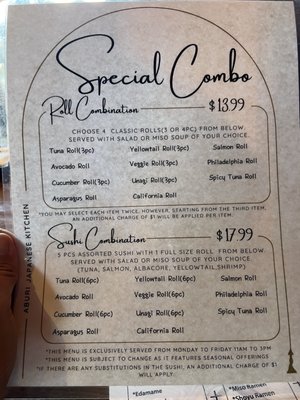 Special Combo
Roll Combination $13.99
CHOOSE 4 CLASSIC ROLLS(3 OR 4PC) FROM BELOW.
SERVED WITH SALAD OR MISO SOUP OF YOUR CHOICE.
Tuna Roll(3pc) Yellowtail Roll(3pc) Salmon Roll
Avocado Roll Veggie Roll(3pc) Philadelphia Roll
Cucumber Roll(3pc) Unagi Roll(3pc) Spicy Tuna Roll
Asparagus Roll California Roll
*YOU MAY SELECT EACH ITEM TWICE. HOWEVER, STARTING FROM THE THIRD ITEM,
AN ADDITIONAL CHARGE OF $1 WILL BE APPLIED PER ITEM.
Sushi Combination $17.99
5 PCS ASSORTED SUSHI WITH 1 FULL SIZE ROLL FROM BELOW.
SERVED WITH SALAD OR MISO SOUP OF YOUR CHOICE.
(TUNA, SALMON, ALBACORE, YELLOWTAIL, SHRIMP)
Tuna Roll(6pc) Yellowtail Roll(6pc) Salmon Roll
Avocado Roll Veggie Roll(6pc) Philadelphia Roll
Cucumber Roll(6pc) Unagi Roll(6pc) Spicy Tuna Roll
Asparagus Roll California Roll
*THIS MENU IS EXCLUSIVELY SERVED FROM MONDAY TO FRIDAY 11AM TO 3PM
*THIS MENU IS SUBJECT TO CHANGE AS IT FEATURES SEASONAL OFFERINGS
*IF THERE ARE ANY SUBSTITUTIONS IN THE SUSHI, AN ADDITIONAL CHARGE OF $1
WILL APPLY.
ABURI JAPANESE KITCHEN
*Edamame
*Miso Ramen
*Shoyu Ramen